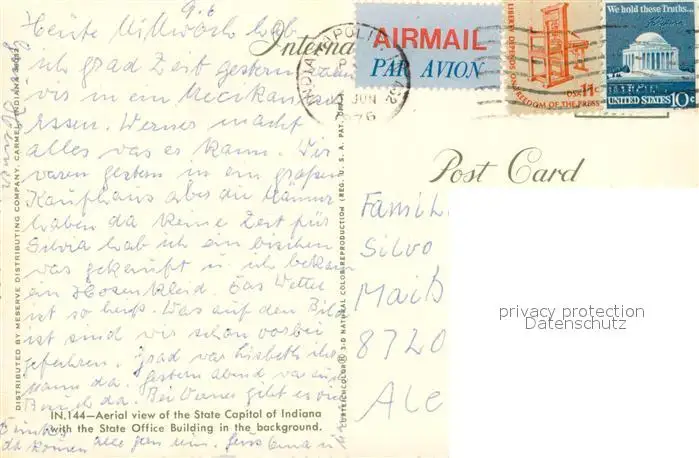 9.6
Heute Mittwoch hab
ich grad Zeit gestern waren
wir in ein Mexikanisch
essen. Werner macht
alles was es kann. Wir
waren gestern in ein großen
Kaufhaus aber die Männer
haben da keine Zeit für
Silvia hab ich ein bischen
was gekauft u. ich bekam
ein Hosenkleid. Das Wetter
ist so heiß. Was auf den Bild
ist sind wir schon vorbei
gefahren. Grad war Lisbeth ihr
Mann da. Gestern abend war auch
Besuch da. Bei Werner gibt es viel
da komen alle gern um.
DISTRIBUTED BY MESERVE DISTRIBUTING COMPANY, CARMEL, INDIANA 46032
IN.144—Aerial view of the State Capitol of Indiana
with the State Office Building in the background.
CURTEICHCOLOR® 3-D NATURAL COLOR REPRODUCTION (REG. U.S.A. PAT. OFF.)
Interna
INDIANAPOLIS
JUN
1976
AIRMAIL
PAR AVION
LIBERTY DEPENDS ON FREEDOM OF THE PRESS
USA 11c
We hold these Truths...
UNITED STATES 10c
Post Card
Famili
Silvo
Maiß
8720
Ale
privacy protection
Datenschutz